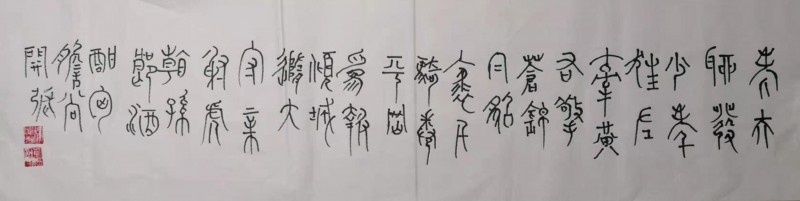 老夫
聊發
少年
狂左
牽黃
右擎
蒼錦
帽貂
裘千
騎卷
平岡
為報
傾城
隨太
守親
射虎
看孫
郎酒
酣胸
膽尚
開張